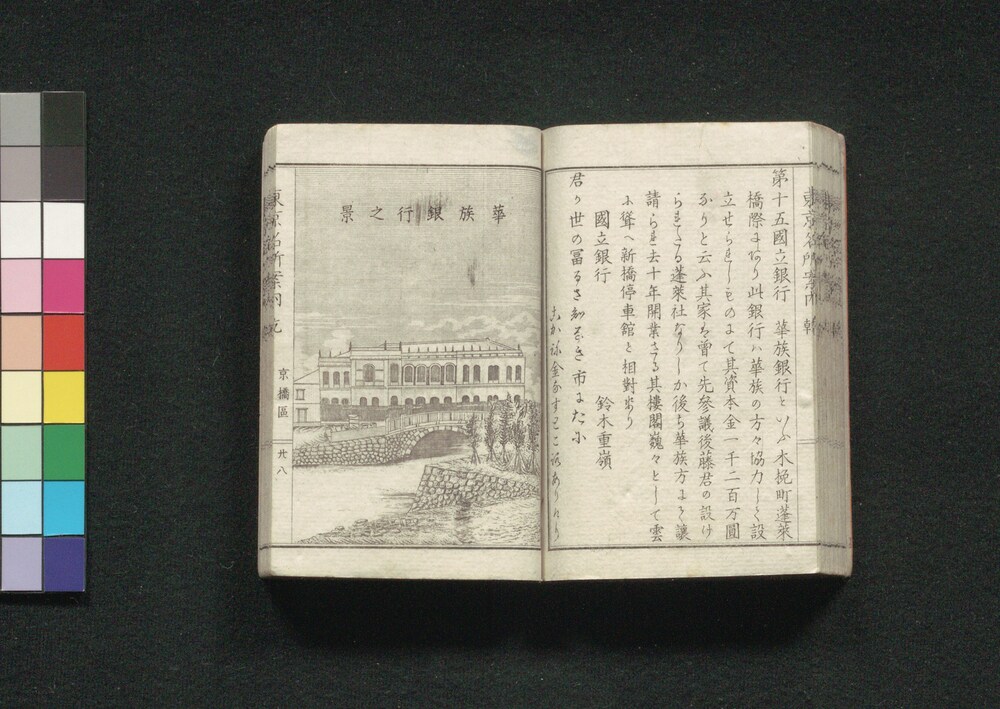 東京名所案内
第十五國立銀行 華族銀行といふ木挽町蓬莱
橋際にあり此銀行ハ華族の方々協力して設
立せられしものにて其資本金一千二百万圓
なりと云ふ其家は曾て先參議後藤君の設け
られたる蓬莱社なりしか後ち華族方にて讓
請られ去十年開業さる其樓閣巍々として雲
に聳へ新橋停車館と相對せり
國立銀行 鈴木重嶺
君か世の冨るさかなき市にたに
こかね金なす
華族銀行之景
東京名所案内
京橋區
廿八